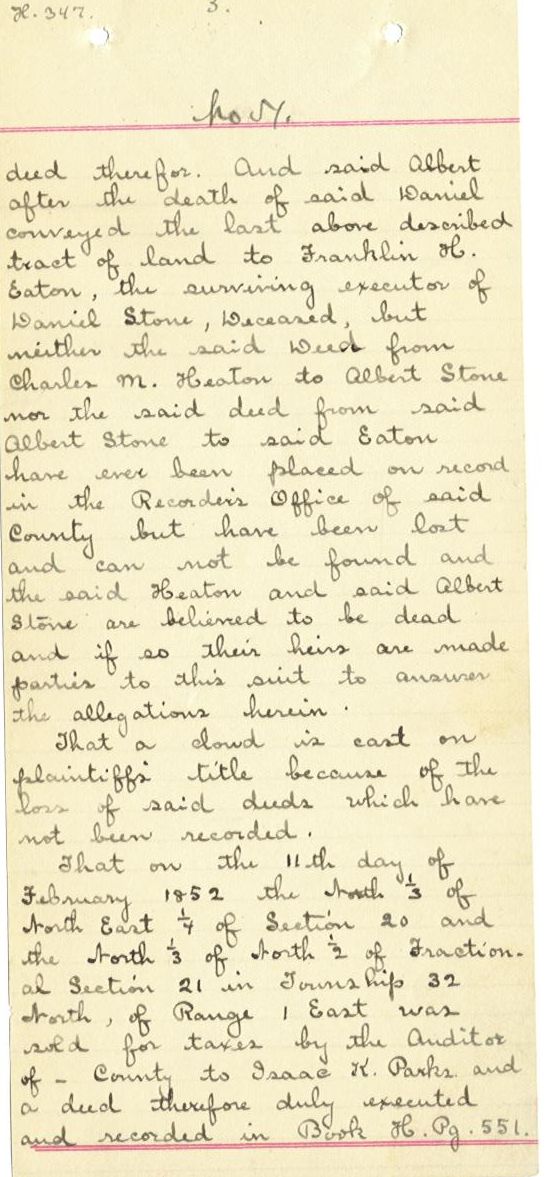 H. 347.
3.
No 51.
deed therefor. And said Albert
after the death of said Daniel
conveyed the last above described
tract of land to Franklin H.
Eaton, the surviving executor of
Daniel Stone, Deceased, but
neither the said Deed from
Charles M. Heaton to Albert Stone
nor the said deed from said
Albert Stone to said Eaton
have ever been placed on record
in the Recorder's Office of said
County but have been lost
and can not be found and
the said Heaton and said Albert
Stone are believed to be dead
and if so their heirs are made
parties to this suit to answer
the allegations herein.
That a cloud is cast on
plaintiffs' title because of the
loss of said deeds which have
not been recorded.
That on the 11th day of
February 1852 the North 1/3 of
North East 1/4 of Section 20 and
the North 1/3 of North 1/2 of Fraction-
al Section 21 in Township 32
North, of Range 1 East was
sold for taxes by the Auditor
of - County to Isaac K. Parks and
a deed therefore duly executed
and recorded in Book H. Pg. 551.